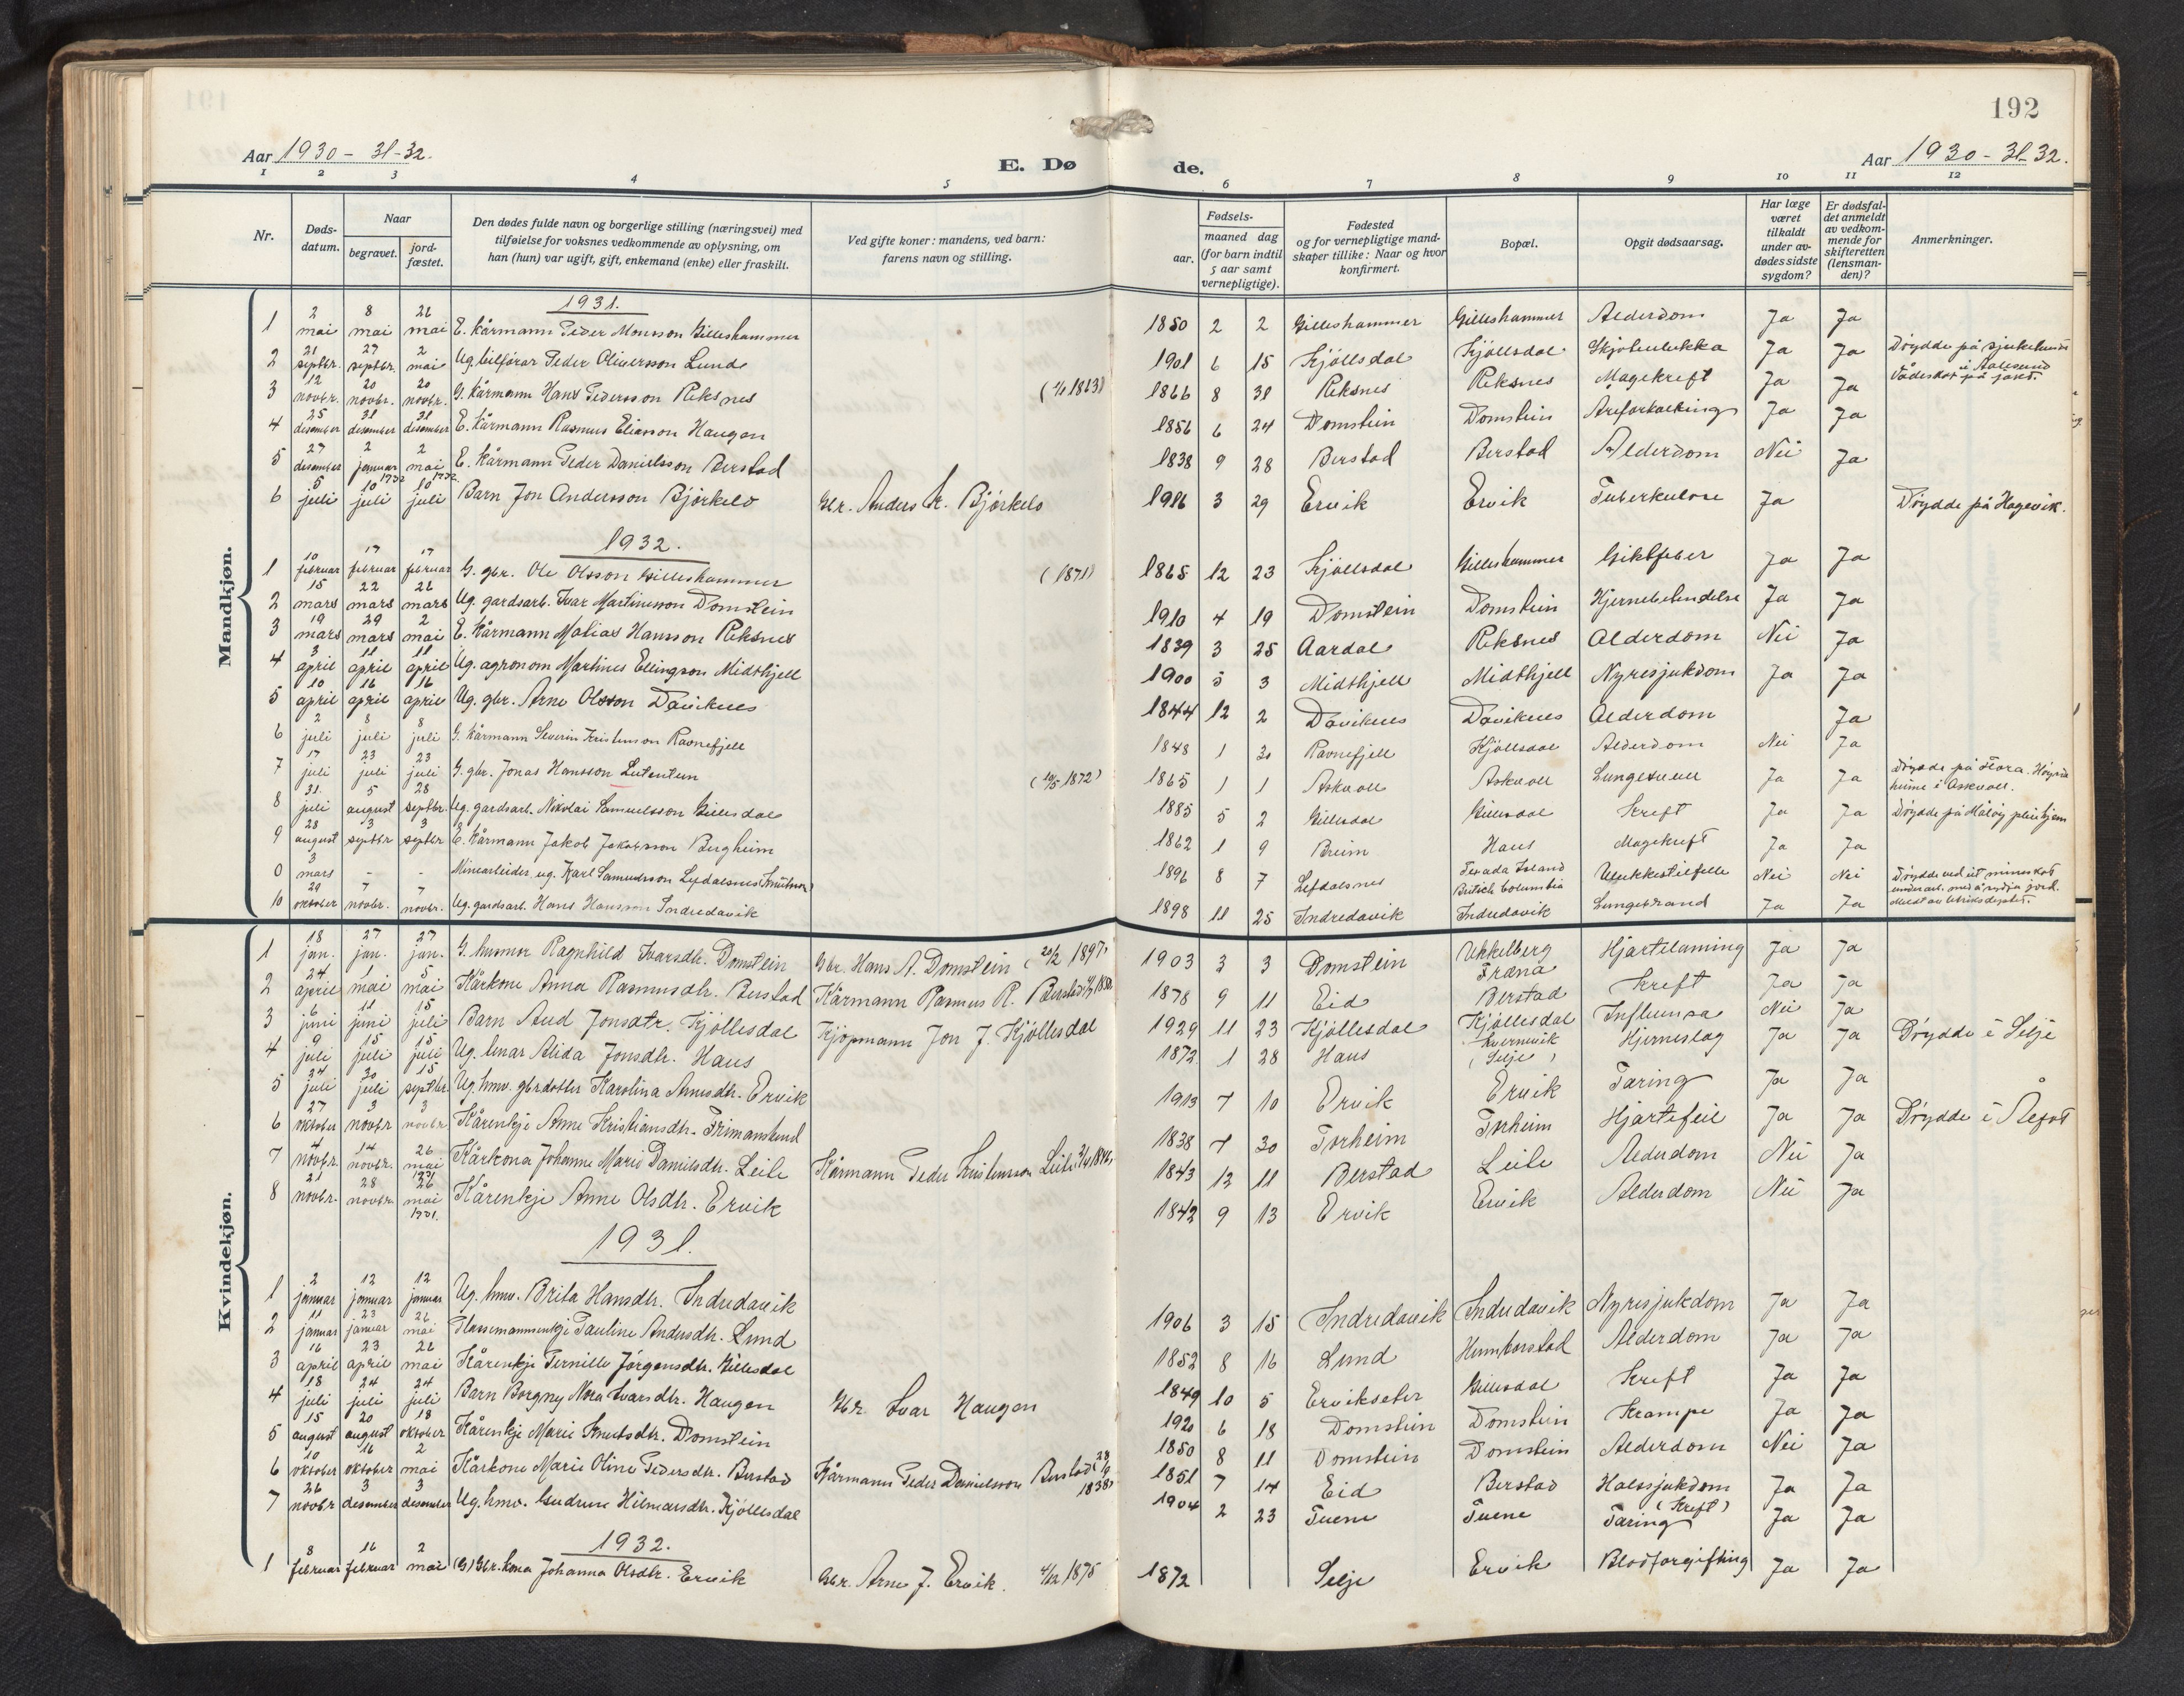 192
Aar 1930-31-32.
E. Døde.
Aar 1930-31-32.
1 2 3 4 5 6 7 8 9 10 11 12
Nr.
Døds-datum.
Naar
begravet.
jord-fæstet.
Den dødes fulde navn og borgerlige stilling (næringsvei) med
tilføielse for voksnes vedkommende av oplysning, om
han (hun) var ugift, gift, enkemand (enke) eller fraskilt.
Ved gifte koner: mandens, ved barn:
farens navn og stilling.
Fødsels-
aar.
maaned dag
(for barn indtil
5 aar samt
vernepligtige).
Fødested
og for vernepligtige mand-
skaper tillike: Naar og hvor
konfirmert.
Bopæl.
Opgit dødsaarsag.
Har læge
været
tilkaldt
under av-
dødes sidste
sygdom?
Er dødsfal-
det anmeldt
av vedkom-
mende for
skifteretten
(lensman-
den)?
Anmerkninger.
Mandkjøn.
1931.
1 2 mai 8 mai 26 mai E. kårmann Peder Monsson Gilleshammer 1850 2 2 Gilleshammer Gilleshammer Alderdom Ja Ja
2 21 septbr. 27 septbr. 2 mai Ug. bilførar Peder Oliversson Lunde 1901 6 15 Kjöllsdal Kjöllsdal Ja Ja Döydde på sjukehuset i Aalesund Vådeskot på jakt.
3 12 novbr. 20 novbr. 20 novbr. G. kårmann Hans Pedersson Reksnes 1863) 1866 8 31 Reksnes Reksnes Magekreft Ja Ja
4 25 desember 31 desember 31 desember E. kårmann Rasmus Eliasson Haugen 1856 6 24 Domstein Domstein Åreforkalking Ja Ja
5 27 desember 2 januar 1932 2 mai 1932 E. kårmann Peder Danielsson Berstad 1838 9 28 Berstad Berstad Alderdom Nei Ja
6 5 juli 10 juli 10 juli Barn Jon Andersson Björkelo Gbr. Anders K. Björkelo 1916 3 29 Ervik Ervik Tuberkulose Ja Döydde på Hagevik.
1932.
1 10 februar 17 februar 17 februar G. gbr. Ole Olsson Gilleshammer (1871) 1865 12 23 Kjöllsdal Gilleshammer Giktfeber Ja Ja
2 15 mars 22 mars 26 mars Ug. gardsarb. Ivar Martinusson Domstein 1910 4 19 Domstein Domstein Hjernebetendelse Ja Ja
3 19 mars 29 mars 2 mai E. kårmann Matias Hansson Reksnes 1839 3 25 Aardal Reksnes Alderdom Nei Ja
4 3 april 11 april 11 april Ug. agronom Martines Ellingson Midthjell 1900 5 3 Midthjell Midthjell Nyresjukdom Ja Ja
5 10 april 16 april 16 april Ug. gbr. Arne Olsson Daviknes 1844 12 2 Daviknes Daviknes Alderdom Ja
6 2 juli 8 juli 8 juli G. kårmann Severin Kristenson Ravnefjell 1848 1 30 Ravnefjell Kjöllsdal Alderdom Nei Ja
7 17 juli 23 juli 23 juli G. gbr. Jonas Hansson Lutentun (10/5 1872) 1865 1 1 Askvoll Askvoll Ja Ja Döydde på Flora. Höyrde heime i Askvoll.
8 31 juli 5 august 28 septbr. Ug. gardsarb. Nikolai Samuelsson Gillesdal 1885 5 2 Gillesdal Gillesdal Kreft Ja Ja Döydde på Måløy pleiehjem
9 28 august 3 septbr 3 septbr E. kårmann Jakob Jakobsson Bergheim 1862 1 9 Breim Haus Magekreft Ja Ja
0 3 mars - - Minearbeider, ug. Karl Samuelsson Lefdalsnes (Knutson) 1896 8 7 Lefdalsnes Texada Island British Columbia Ulukkestilfelle Nei Nei Döydde ved eit mineskot under arb. med å rydja jord. Meldt av Utriksdeptet.
10 29 oktober 7 novbr. 7 novbr. Ug. gardsarb. Hans Hansson Indredavik 1898 11 25 Indredavik Indredavik Lungebrand Ja Ja
Kvindekjøn.
1 18 jan. 27 jan. 27 jan. G. husmor Ragnhild Ivarsdtr. Domstein Gbr. Hans A. Domstein (20/2 1897) 1903 3 3 Domstein Ukkelberg Fræna Hjartelaming Ja Ja
2 24 april 1 mai 5 mai Kårkone Anna Rasmusdtr. Berstad Kårmann Rasmus R. Berstad 1878 9 11 Eid Berstad Kreft Ja Ja
3 6 juni 11 juni 15 juli Barn Aud Jonsdtr. Kjöllesdal Kjöpmann Jon J. Kjöllesdal 1929 11 23 Kjöllesdal Kjöllesdal Influensa Nei Ja
4 9 juli 15 juli 15 juli Ug. hmor Alida Jonsdtr. Haus 1872 1 28 Haus Kvernevik (Selje) Hjerneslag Ja Ja Döydde i Selje
5 24 juli 30 juli 15 septbr. Ug. hmo. gbrdotter Karolina Arnesdtr. Ervik 1913 7 10 Ervik Ervik Tæring Ja Ja
6 27 oktober 3 novbr 3 novbr Kårenkje Anne Kristiansdtr. Frimanslund 1838 7 30 Torheim Torheim Hjartefeil Ja Ja Döydde i Ålfot
7 4 novbr. 14 novbr. 26 mai 1931 Kårkona Johanne Marie Danielsdtr. Leite Kårmann Peder Kristensson Leite 1843 12 11 Berstad Leite Alderdom Nei Ja
8 21 novbr. 28 novbr. 26 mai 1931. Kårenkje Anne Olsdtr. Ervik 1842 9 13 Ervik Ervik Alderdom Nei Ja
1931.
1 2 januar 12 januar 12 januar Ug. hmo. Brita Hansdtr. Indredavik 1906 3 15 Indredavik Indredavik Nyresjukdom Ja Ja
2 11 januar 23 januar 26 mai Plassemannsenkje Pauline Andersdtr. Lund 1852 8 16 Lund Humborstad Alderdom Ja Ja
3 16 april 23 april 26 mai Kårenkje Pernille Jørgensdtr. Gillesdal 1849 10 5 Ervikseter Gillesdal Kreft Ja Ja
4 18 juli 24 juli 24 juli Barn Borgny Nora Ivarsdtr. Haugen Gbr. Ivar Haugen 1920 6 18 Domstein Domstein Krampe Ja Ja
5 15 august 20 august 18 oktober Kårenkje Marie Knutsdtr. Domstein 1850 8 11 Domstein Domstein Alderdom Nei Ja
6 10 oktober 16 oktober 2 mai Kårkone Marie Oline Pedersdtr. Berstad Kårmann Peder Danielsson Berstad (28/9 1838) 1851 7 14 Eid Berstad Halssjukdom (Kreft) Ja Ja
7 26 novbr 3 desember 3 desember Ug. hmo. Gudrun Hilmarsdtr. Kjöllesdal 1904 2 23 Tuene Tuene Tæring Ja Ja
1932.
1 8 februar 16 februar 2 mai (G) Gbr.kona Johanna Olsdtr. Ervik Gbr. Arne J. Ervik. 4/12 1875 1872 Selje Ervik Blodforgifting Ja Ja